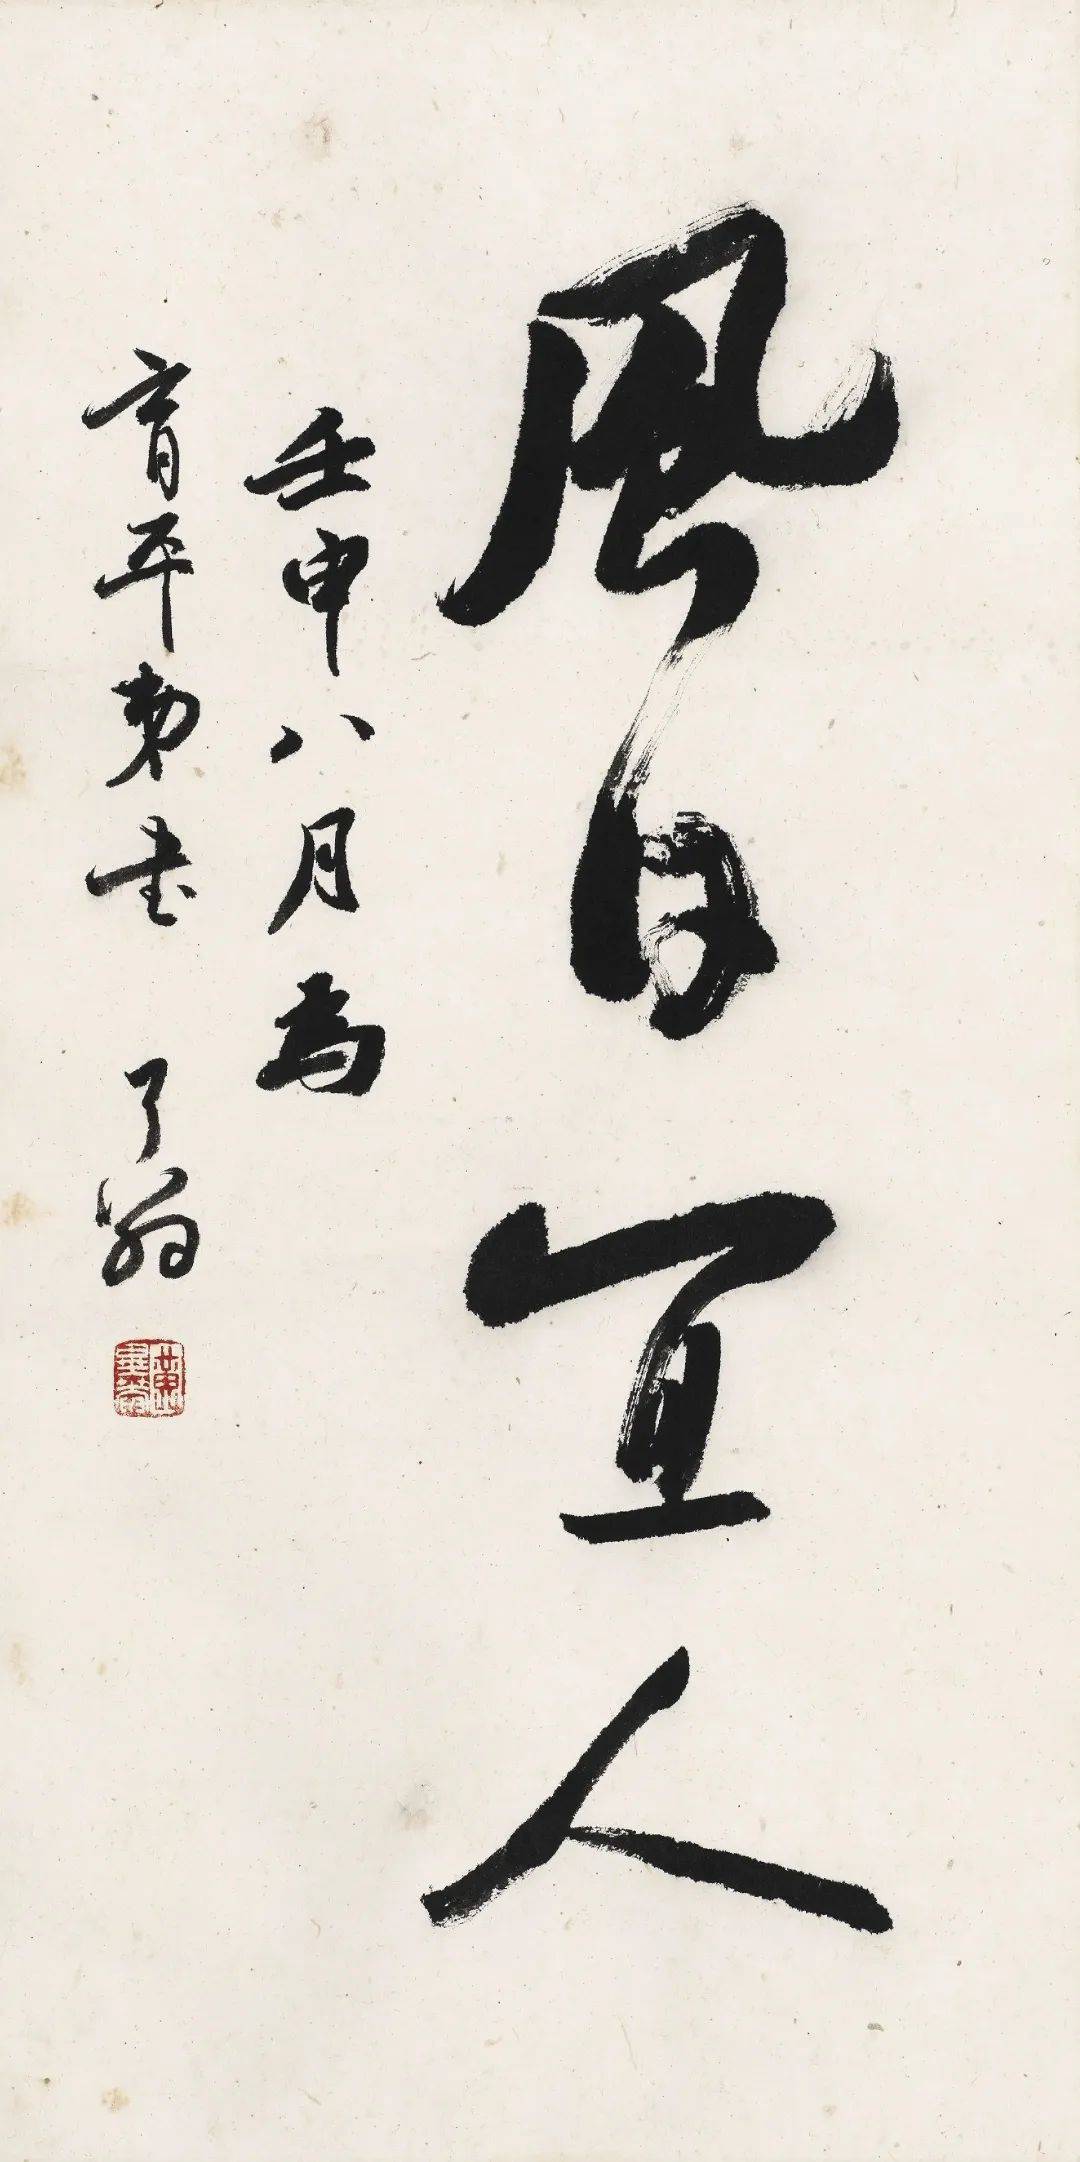 風日宜人
壬申八月為
育平弟書 了翁
黄